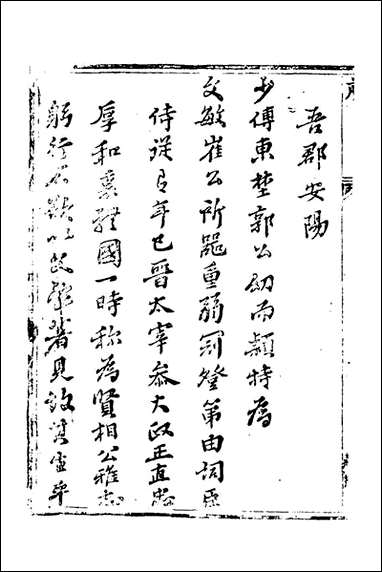 吾郡安陽
少傅東埜郭公幼而穎特為
文敏崔公所噐重弱冠登第由詞臣
侍從有年已晉太宰叅大政正直忠
厚和衷體國一時称為賢相公雅志
躬行不欲以政學著見故其